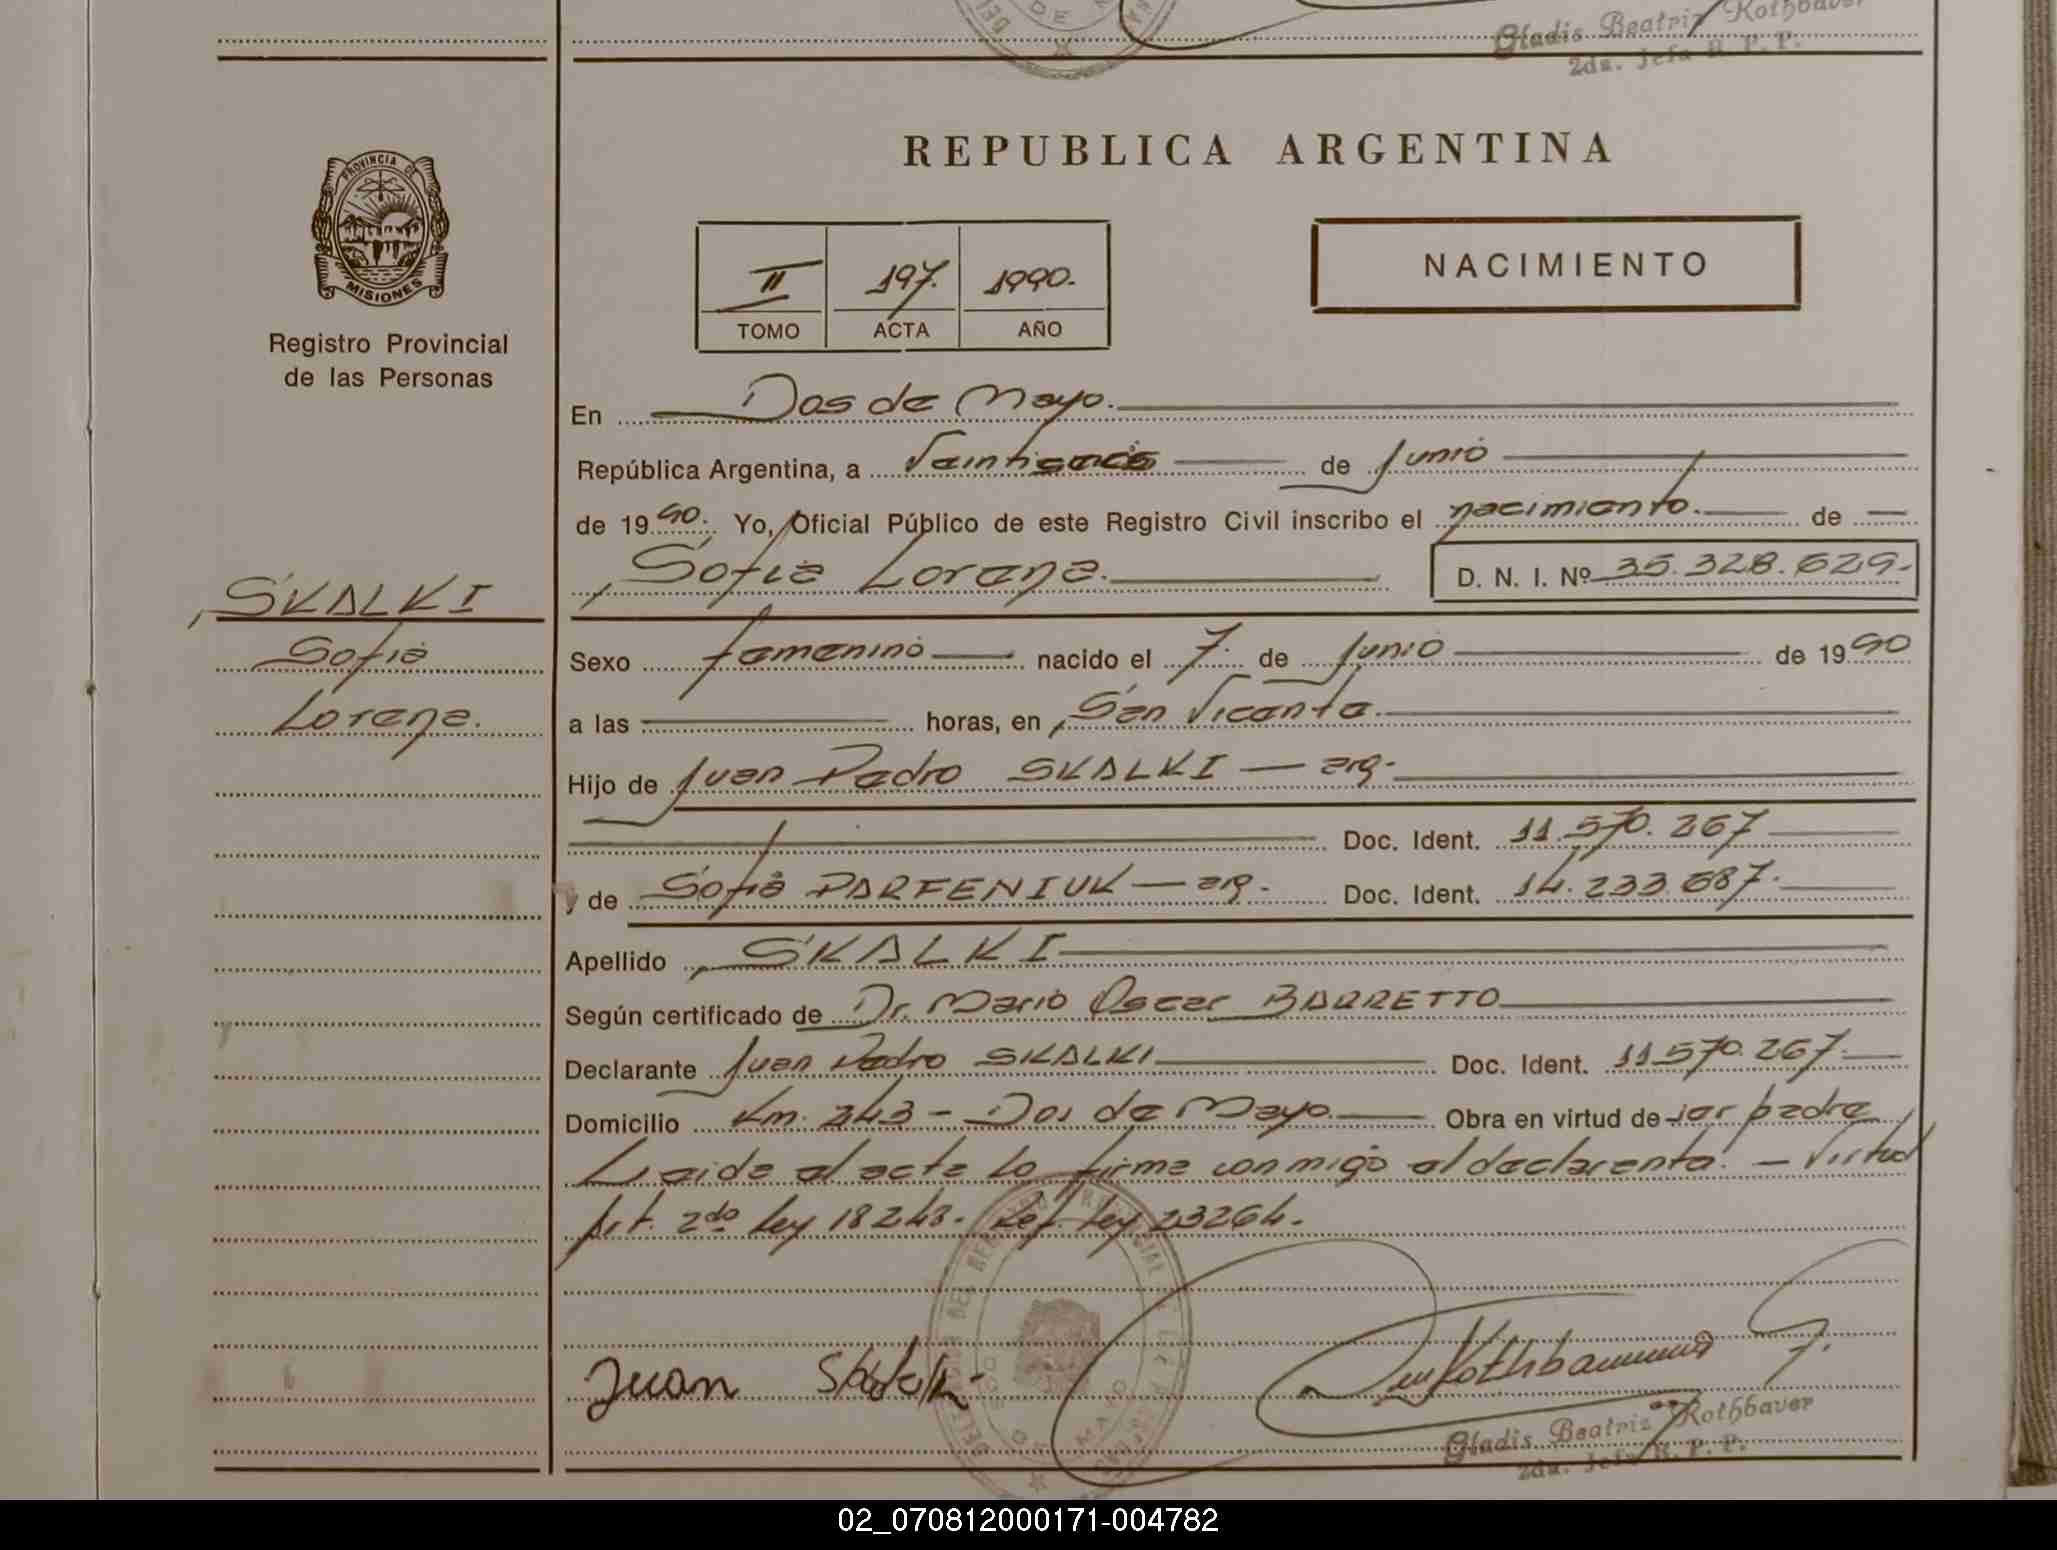 Gladis Beatriz Rothbaver
2da. Jefa R. P. P.
REPUBLICA ARGENTINA
PROVINCIA DE
MISIONES
Registro Provincial
de las Personas
NACIMIENTO
II 197. 1990.
TOMO ACTA AÑO
En Dos de Mayo.
República Argentina, a de Junio
de 1990. Yo, Oficial Público de este Registro Civil inscribo el nacimiento. de
Sofia Lorena. D. N. I. Nº 35.328.629.-
SKALKI
Sofia
Lorena.
Sexo femenino nacido el 7 de Junio de 1990
a las horas, en San Vicente.
Hijo de Juan Pedro SKALKI — arg.
Doc. Ident. 11.570.267
y de Sofia PARFENIUK — arg. Doc. Ident. 14.233.687.
Apellido SKALKI
Según certificado de Dr. Mario Oscar BARRETTO
Declarante Juan Pedro SKALKI Doc. Ident. 11570.267.
Domicilio Km. 243 - Dos de Mayo. Obra en virtud de ser padre
Leida el acta lo firma conmigo el declarante. - Virtud
Art. 2do ley 18248. Ref. ley 23264.
Juan
Gladis Beatriz Rothbaver
2da. Jefa R. P. P.
02_070812000171-004782